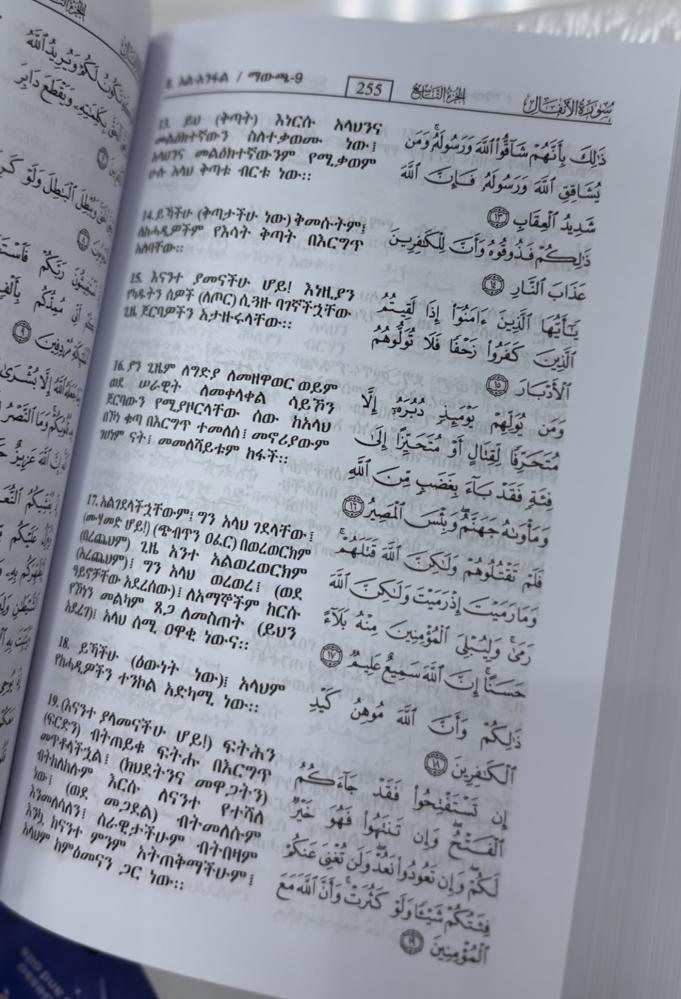 8. አል-አንፋል / ማውጫ-9
255
الجزء التاسع
سورة الأنفال
13. ይህ (ቅጣት) እነርሱ አላህንና
መልዕክተኛውን ስለተቃወሙ ነው፤
አላህንና መልዕክተኛውንም የሚቃወም
ሁሉ አላህ ቅጣቱ ብርቱ ነው፡፡
14. ይኻችሁ (ቅጣታችሁ ነው) ቅመሱትም፤
ለከሓዲዎችም የእሳት ቅጣት በእርግጥ
አለባቸው፡፡
15. እናንተ ያመናችሁ ሆይ! እነዚያን
የካዱትን ሰዎች (ለጦር) ሲጓዙ ባገኛችኋቸው
ጊዜ ጀርባዎችን አታዙሩላቸው፡፡
16. ያን ጊዜም ለግድያ ለመዘዋወር ወይም
ወደ ሠራዊት ለመቀላቀል ሳይኾን
ጀርባውን የሚያዞርላቸው ሰው ከአላህ
በኾነ ቁጣ በእርግጥ ተመለሰ፤ መኖሪያውም
ገሀነም ናት፤ መመለሻይቱም ከፋች፡፡
17. አልገደላችኋቸውም፤ ግን አላህ ገደላቸው፤
(ሙሃመድ ሆይ!) (ጭብጥን ዐፈር) በወረወርክም
(በረጨህም) ጊዜ አንተ አልወረወርክም
(አረጨህም)፤ ግን አላህ ወረወረ፤ (ወደ
ዓይኖቻቸው አደረሰው)፤ ለአማኞችም ከርሱ
የኾነን መልካም ጸጋ ለመስጠት (ይህን
አደረገ)፤ አላህ ሰሚ ዐዋቂ ነውና፡፡
18. ይኻችሁ (ዕውነት ነው)፤ አላህም
የከሓዲዎችን ተንኮል አድካሚ ነው፡፡
19. (እናንተ ያላመናችሁ ሆይ!) ፍትሕን
(ፍርድን) ብትጠይቁ ፍትሑ በእርግጥ
መጥቶላችኋል፤ (ክህደትንና መዋጋትን)
ብትከለከሉም እርሱ ለናንተ የተሻለ
ነው፤ (ወደ መጋደል) ብትመለሱም
እንመለሳለን፤ ሰራዊታችሁም ብትበዛም
እንኳ ከናንተ ምንም አትጠቅማችሁም፤
አላህም ከምዕመናን ጋር ነው፡፡
ذَٰلِكَ بِأَنَّهُمْ شَاقُّوا۟ ٱللَّهَ وَرَسُولَهُۥ ۚ وَمَن
يُشَاقِقِ ٱللَّهَ وَرَسُولَهُۥ فَإِنَّ ٱللَّهَ
شَدِيدُ ٱلْعِقَابِ ١٣
ذَٰلِكُمْ فَذُوقُوهُ وَأَنَّ لِلْكَٰفِرِينَ
عَذَابَ ٱلنَّارِ ١٤
يَٰٓأَيُّهَا ٱلَّذِينَ ءَامَنُوٓا۟ إِذَا لَقِيتُمُ
ٱلَّذِينَ كَفَرُوا۟ زَحْفًا فَلَا تُوَلُّوهُمُ
ٱلْأَدْبَارَ ١٥
وَمَن يُوَلِّهِمْ يَوْمَئِذٍ دُبُرَهُۥٓ إِلَّا
مُتَحَرِّفًا لِّقِتَالٍ أَوْ مُتَحَيِّزًا إِلَىٰ
فِئَةٍ فَقَدْ بَآءَ بِغَضَبٍ مِّنَ ٱللَّهِ
وَمَأْوَىٰهُ جَهَنَّمُ ۖ وَبِئْسَ ٱلْمَصِيرُ ١٦
فَلَمْ تَقْتُلُوهُمْ وَلَٰكِنَّ ٱللَّهَ قَتَلَهُمْ ۚ
وَمَا رَمَيْتَ إِذْ رَمَيْتَ وَلَٰكِنَّ ٱللَّهَ
رَمَىٰ ۚ وَلِيُبْلِىَ ٱلْمُؤْمِنِينَ مِنْهُ بَلَآءً
حَسَنًا ۚ إِنَّ ٱللَّهَ سَمِيعٌ عَلِيمٌ ١٧
ذَٰلِكُمْ وَأَنَّ ٱللَّهَ مُوهِنُ كَيْدِ
ٱلْكَٰفِرِينَ ١٨
إِن تَسْتَفْتِحُوا۟ فَقَدْ جَآءَكُمُ
ٱلْفَتْحُ ۖ وَإِن تَنتَهُوا۟ فَهُوَ خَيْرٌ
لَّكُمْ ۖ وَإِن تَعُودُوا۟ نَعُدْ وَلَن تُغْنِىَ عَنكُمْ
فِئَتُكُمْ شَيْـًٔا وَلَوْ كَثُرَتْ وَأَنَّ ٱللَّهَ مَعَ
ٱلْمُؤْمِنِينَ ١٩